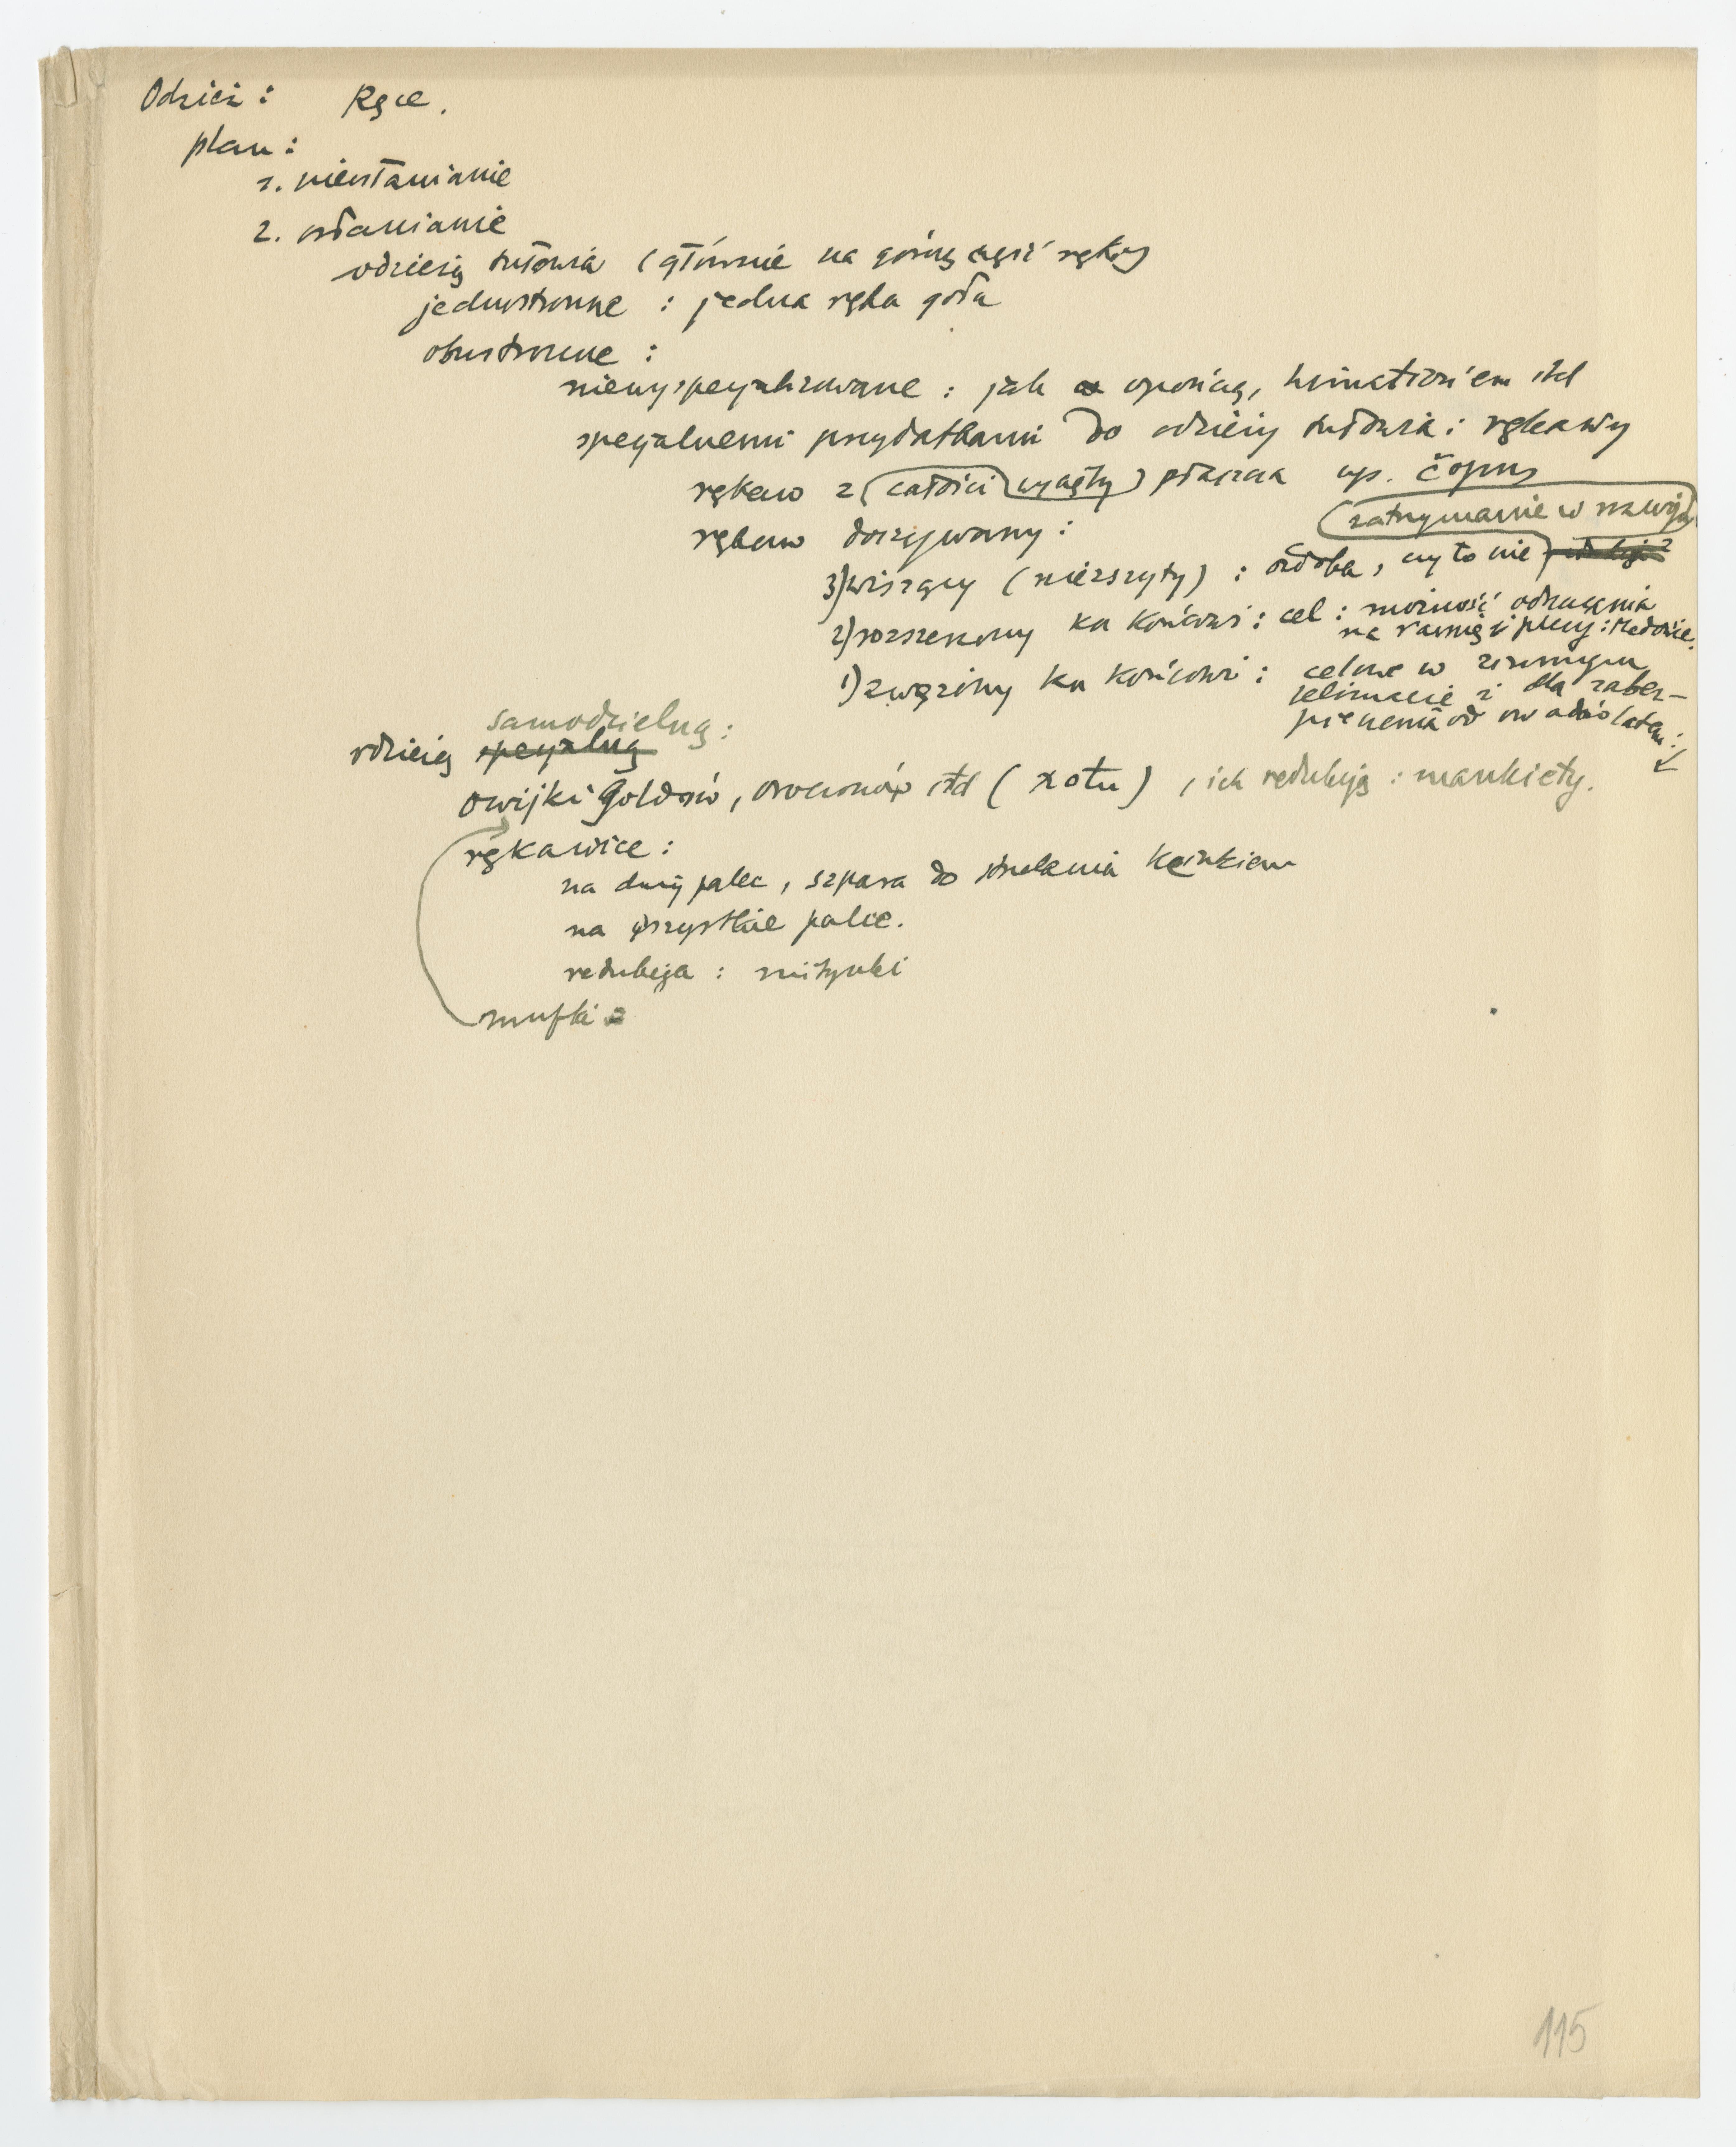 Odzież : Ręce.
plan :
1. niesłanianie
2. osłanianie
odzieżą tułowia (głównie na górną część ręki)
jednostronne : jedna ręka goła
obustronne :
niewyspecjalizowane : jak opończą, himation'em itd
specjalnemi przydatkami do odzieży tułowia : rękawy
rękaw z całości wycięty płaszcza np. čopuz
zatrzymanie w rozwoju
rękaw doszywany :
3) wiszący (niezszyty) : ozdoba, czy to nie
2) rozszerzony ku końcowi : cel : możność odrzucenia
na ramię i plecy :
1) zwężony ku końcowi : celowe w zimnym
klimacie i dla zabez-
pieczenia od owadów latem :
samodzielną :
odzieżą specjalną
owijki Goldów, Oroczonów itd (xotu), ich redukcja : mankiety.
rękawice :
na duży palec, szpara do strzelania
na wszystkie palce.
redukcja : mitynki
mufki
115